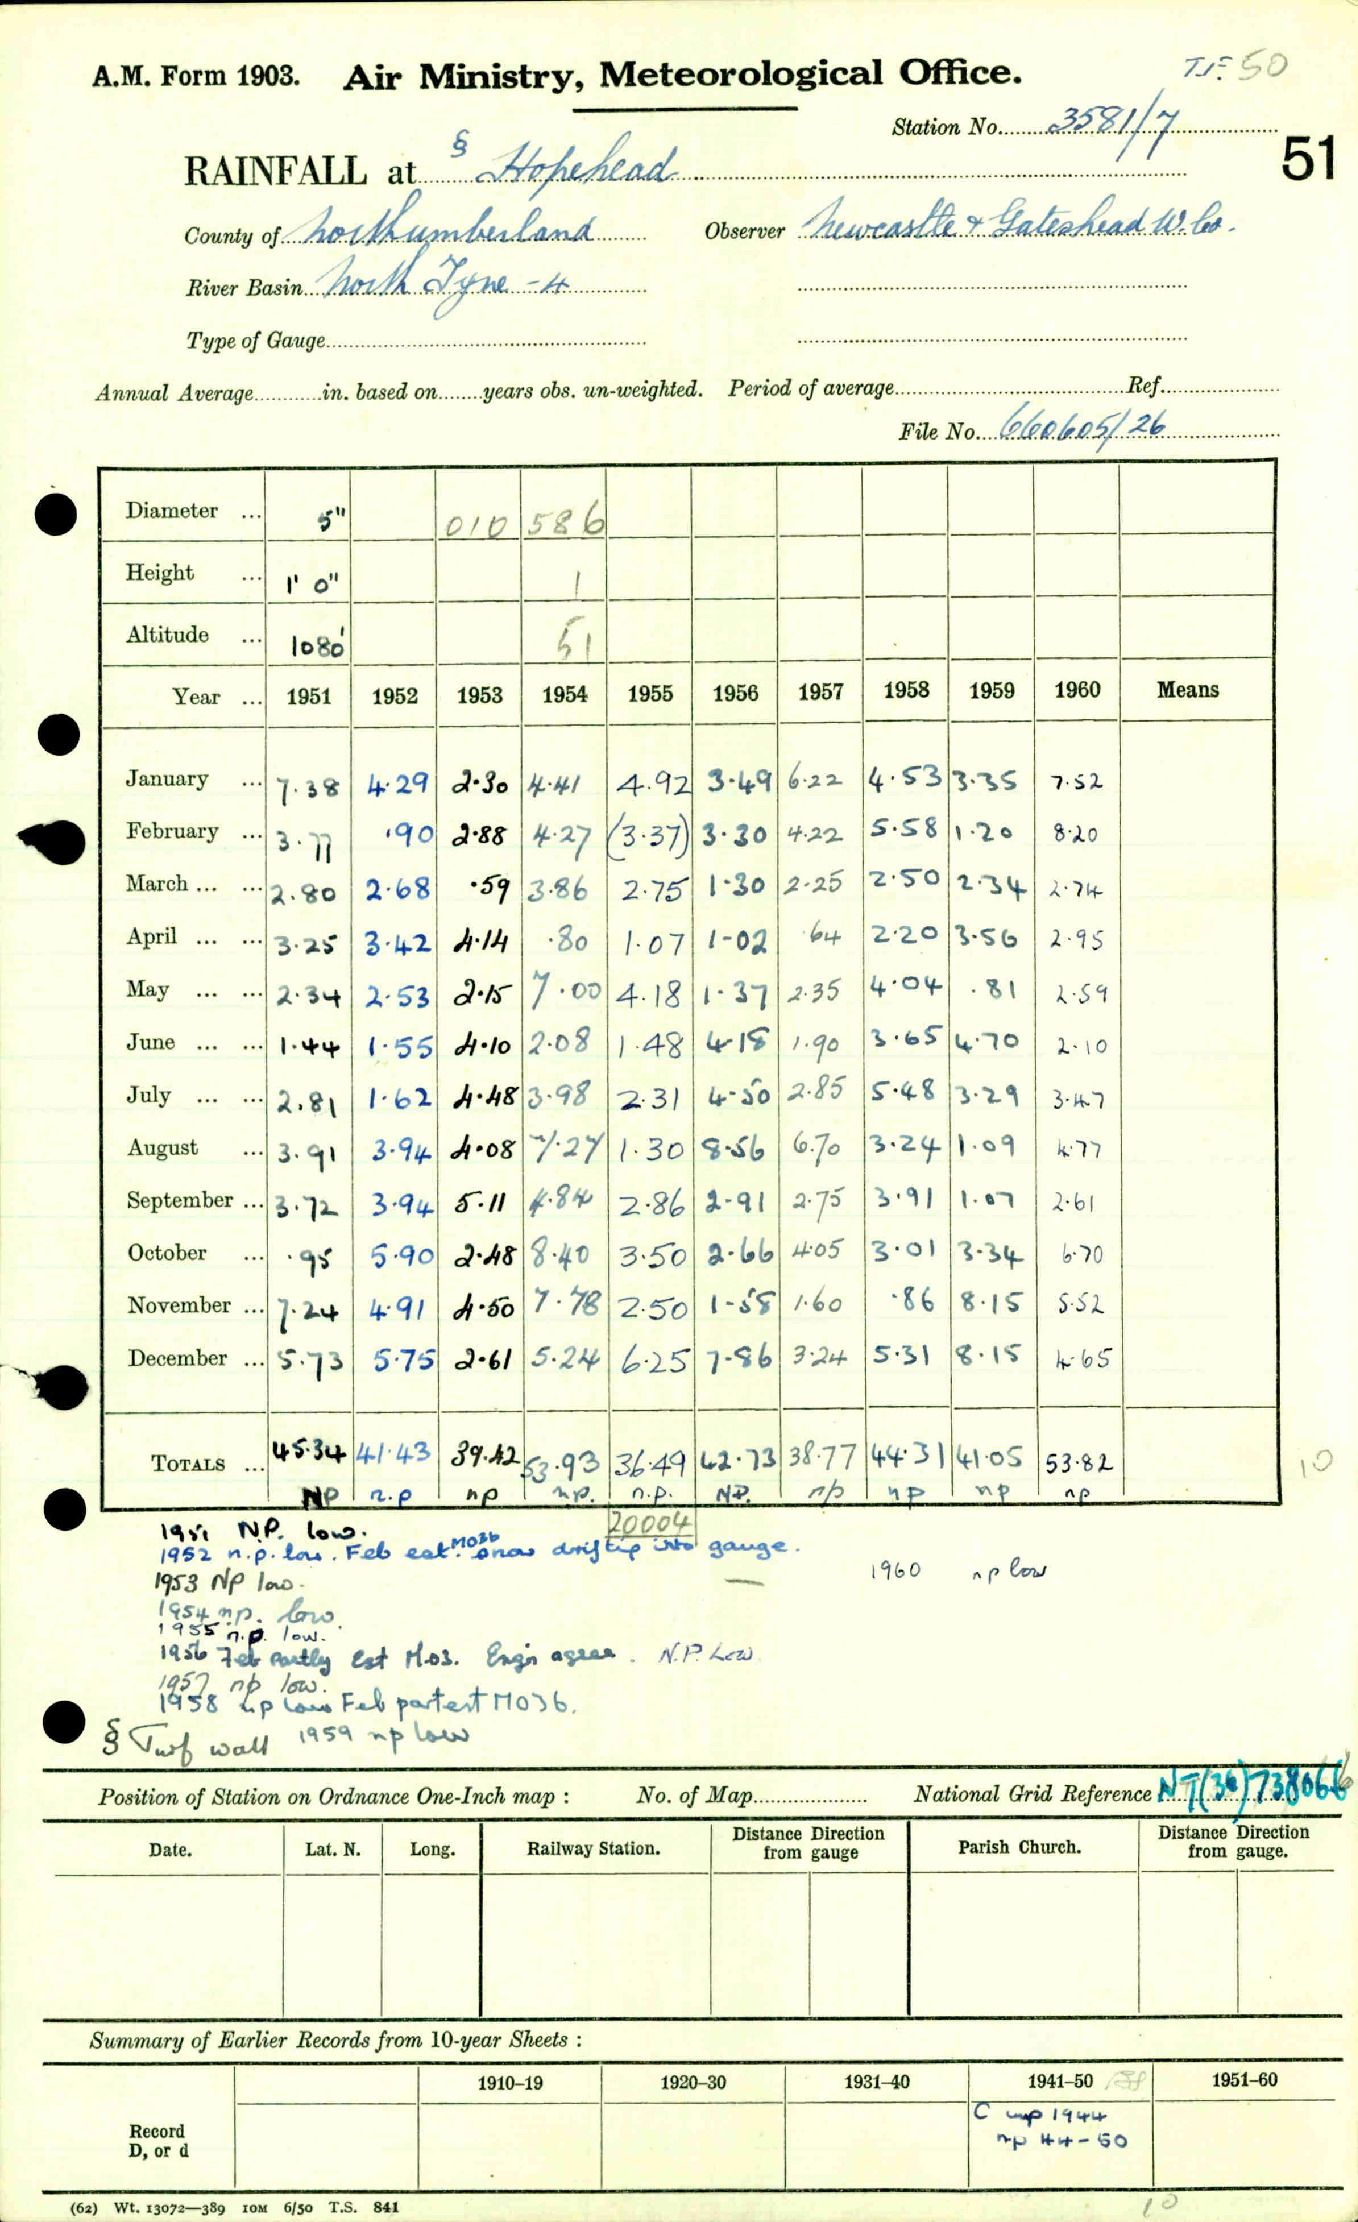 A.M. Form 1903. Air Ministry, Meteorological Office. 50
Station No. 3581/7
51
RAINFALL at § Hopehead
County of Northumberland Observer Newcastle & Gateshead W. Co.
River Basin North Tyne - 4
Type of Gauge
Annual Average in. based on years obs. un-weighted. Period of average Ref.
File No. 660605/26
Diameter ... 5" 010 586
Height ... 1' 0" 1
Altitude ... 1080' 51
Year ... 1951 1952 1953 1954 1955 1956 1957 1958 1959 1960 Means
January ... 7.38 4.29 2.30 4.41 4.92 3.49 6.22 4.53 3.35 7.52
February ... 3.77 .90 2.88 4.27 (3.37) 3.30 4.22 5.58 1.20 8.20
March ... ... 2.80 2.68 .59 3.86 2.75 1.30 2.25 2.50 2.34 2.74
April ... ... 3.25 3.42 4.14 .80 1.07 1.02 .64 2.20 3.56 2.95
May ... ... 2.34 2.53 2.15 7.00 4.18 1.37 2.35 4.04 .81 2.59
June ... ... 1.44 1.55 4.10 2.08 1.48 4.18 1.90 3.65 4.70 2.10
July ... ... 2.81 1.62 4.48 3.98 2.31 4.50 2.85 5.48 3.29 3.47
August ... 3.91 3.94 4.08 7.27 1.30 8.56 6.70 3.24 1.09 4.77
September ... 3.72 3.94 5.11 4.84 2.86 2.91 2.75 3.91 1.07 2.61
October ... .95 5.90 2.48 8.40 3.50 2.66 4.05 3.01 3.34 6.70
November ... 7.24 4.91 4.50 7.78 2.50 1.58 1.60 .86 8.15 5.52
December ... 5.73 5.75 2.61 5.24 6.25 7.86 3.24 5.31 8.15 4.65
TOTALS ... 45.34 41.43 39.42 53.93 36.49 42.73 38.77 44.31 41.05 53.82 10
NP n.p np n.p. n.p. N.P. np np np np
20004
1951 N.P. low.
1952 n.p. low. Feb est. MO3b snow drifting into gauge.
1953 NP low. 1960 np low
1954 n.p. low.
1955 n.p. low.
1956 Feb partly est MO3. Engr agree. N.P. Low
1957 np low.
1958 np low Feb part est MO3b.
§ Turf wall 1959 np low
Position of Station on Ordnance One-Inch map : No. of Map National Grid Reference NT(36)738066
Date. Lat. N. Long. Railway Station. Distance Direction from gauge Parish Church. Distance Direction from gauge.
Summary of Earlier Records from 10-year Sheets :
1910–19 1920–30 1931–40 1941–50 1951–60
Record D, or d C 1944
np 44-50
(62) Wt. 13072—389 10M 6/50 T.S. 841 10